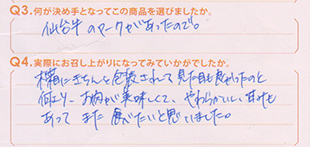 Q3.何が決め手となってこの商品を選びましたか。
仙台牛のマークがあったので。
Q4.実際にお召し上がりになってみていかがでしたか。
木箱にきちんと包装されて見た目も良かったのと
何より、お肉が美味しくて、やわらかいし、甘みも
あって また 食べたいと思いました。